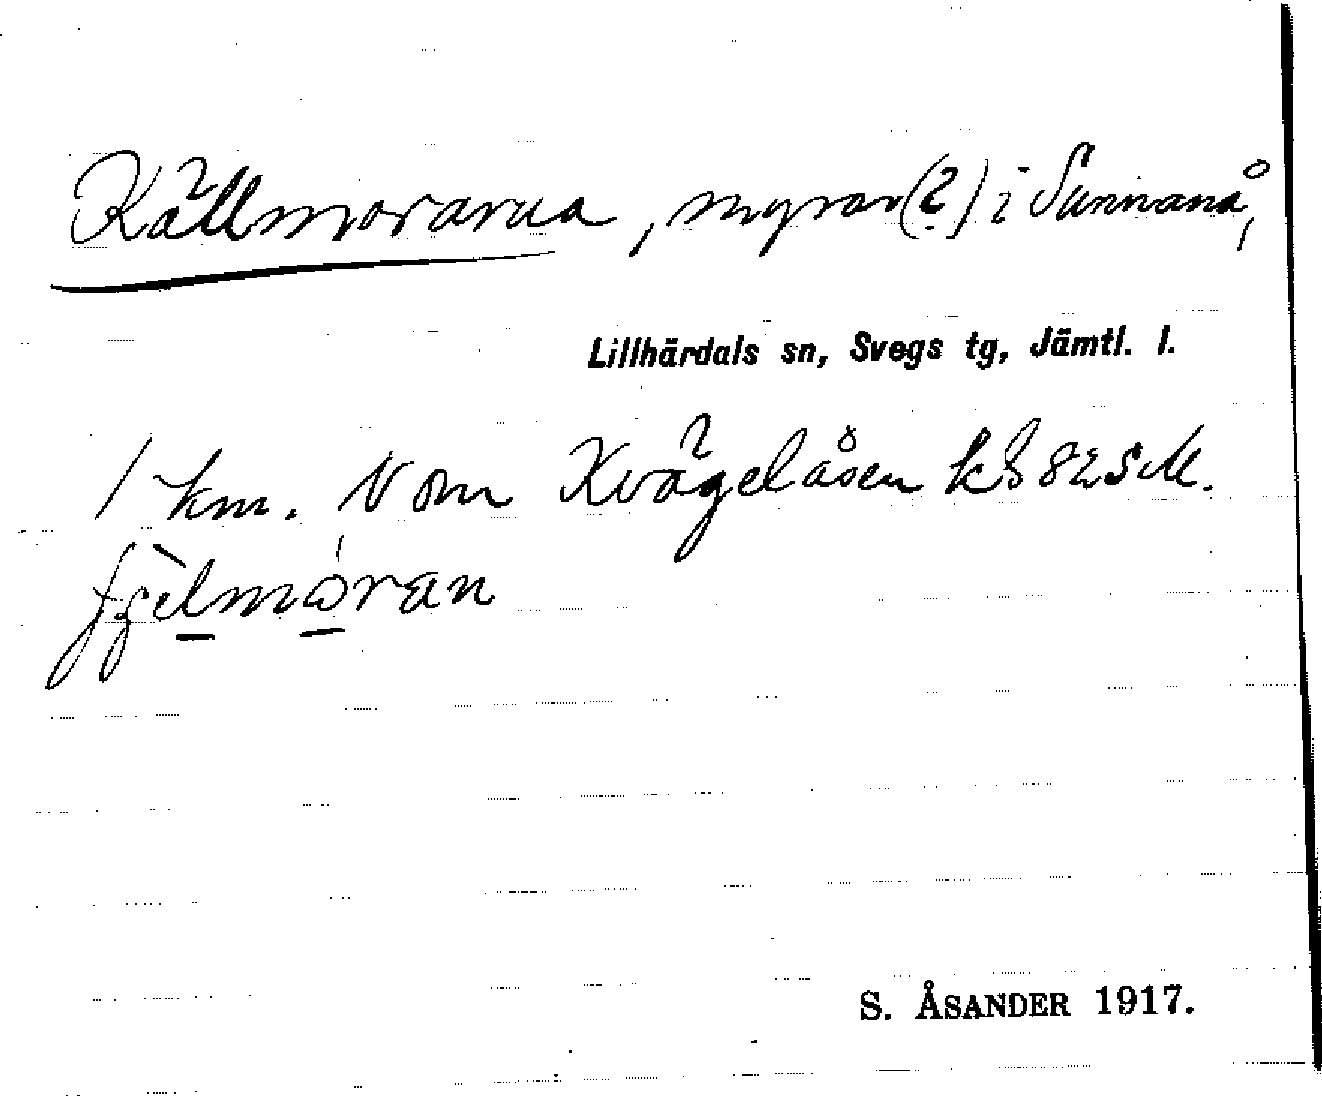 Källmorarna, myrar(?) i Sunnanå,
Lillhärdals sn, Svegs tg, Jämtl. l.
1 km. N om Kvägelåsen k 825 M.
fjelmøran
S. ÅSANDER 1917.